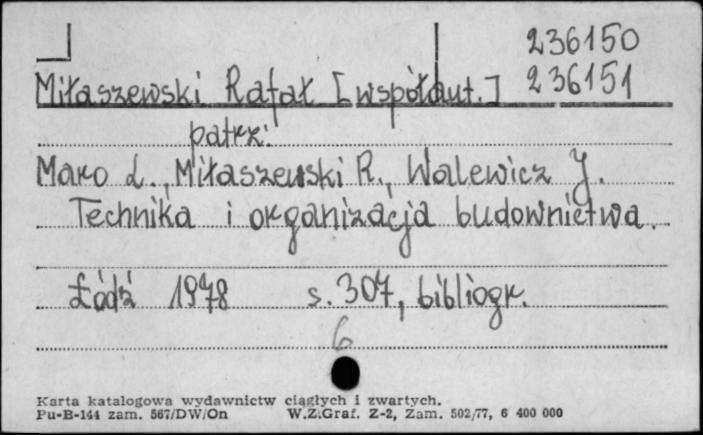 236150
Miłaszewski Rafał [współaut.] 236151
patrz:
Maro L., Miłaszewski R., Walewicz J.
Technika i organizacja budownictwa.
Łódź 1978 s. 307, bibliogr.
6
Karta katalogowa wydawnictw ciągłych i zwartych.
Pu-B-144 zam. 567/DW/On W.Z.Graf. Z-2, Zam. 502/77, 6 400 000